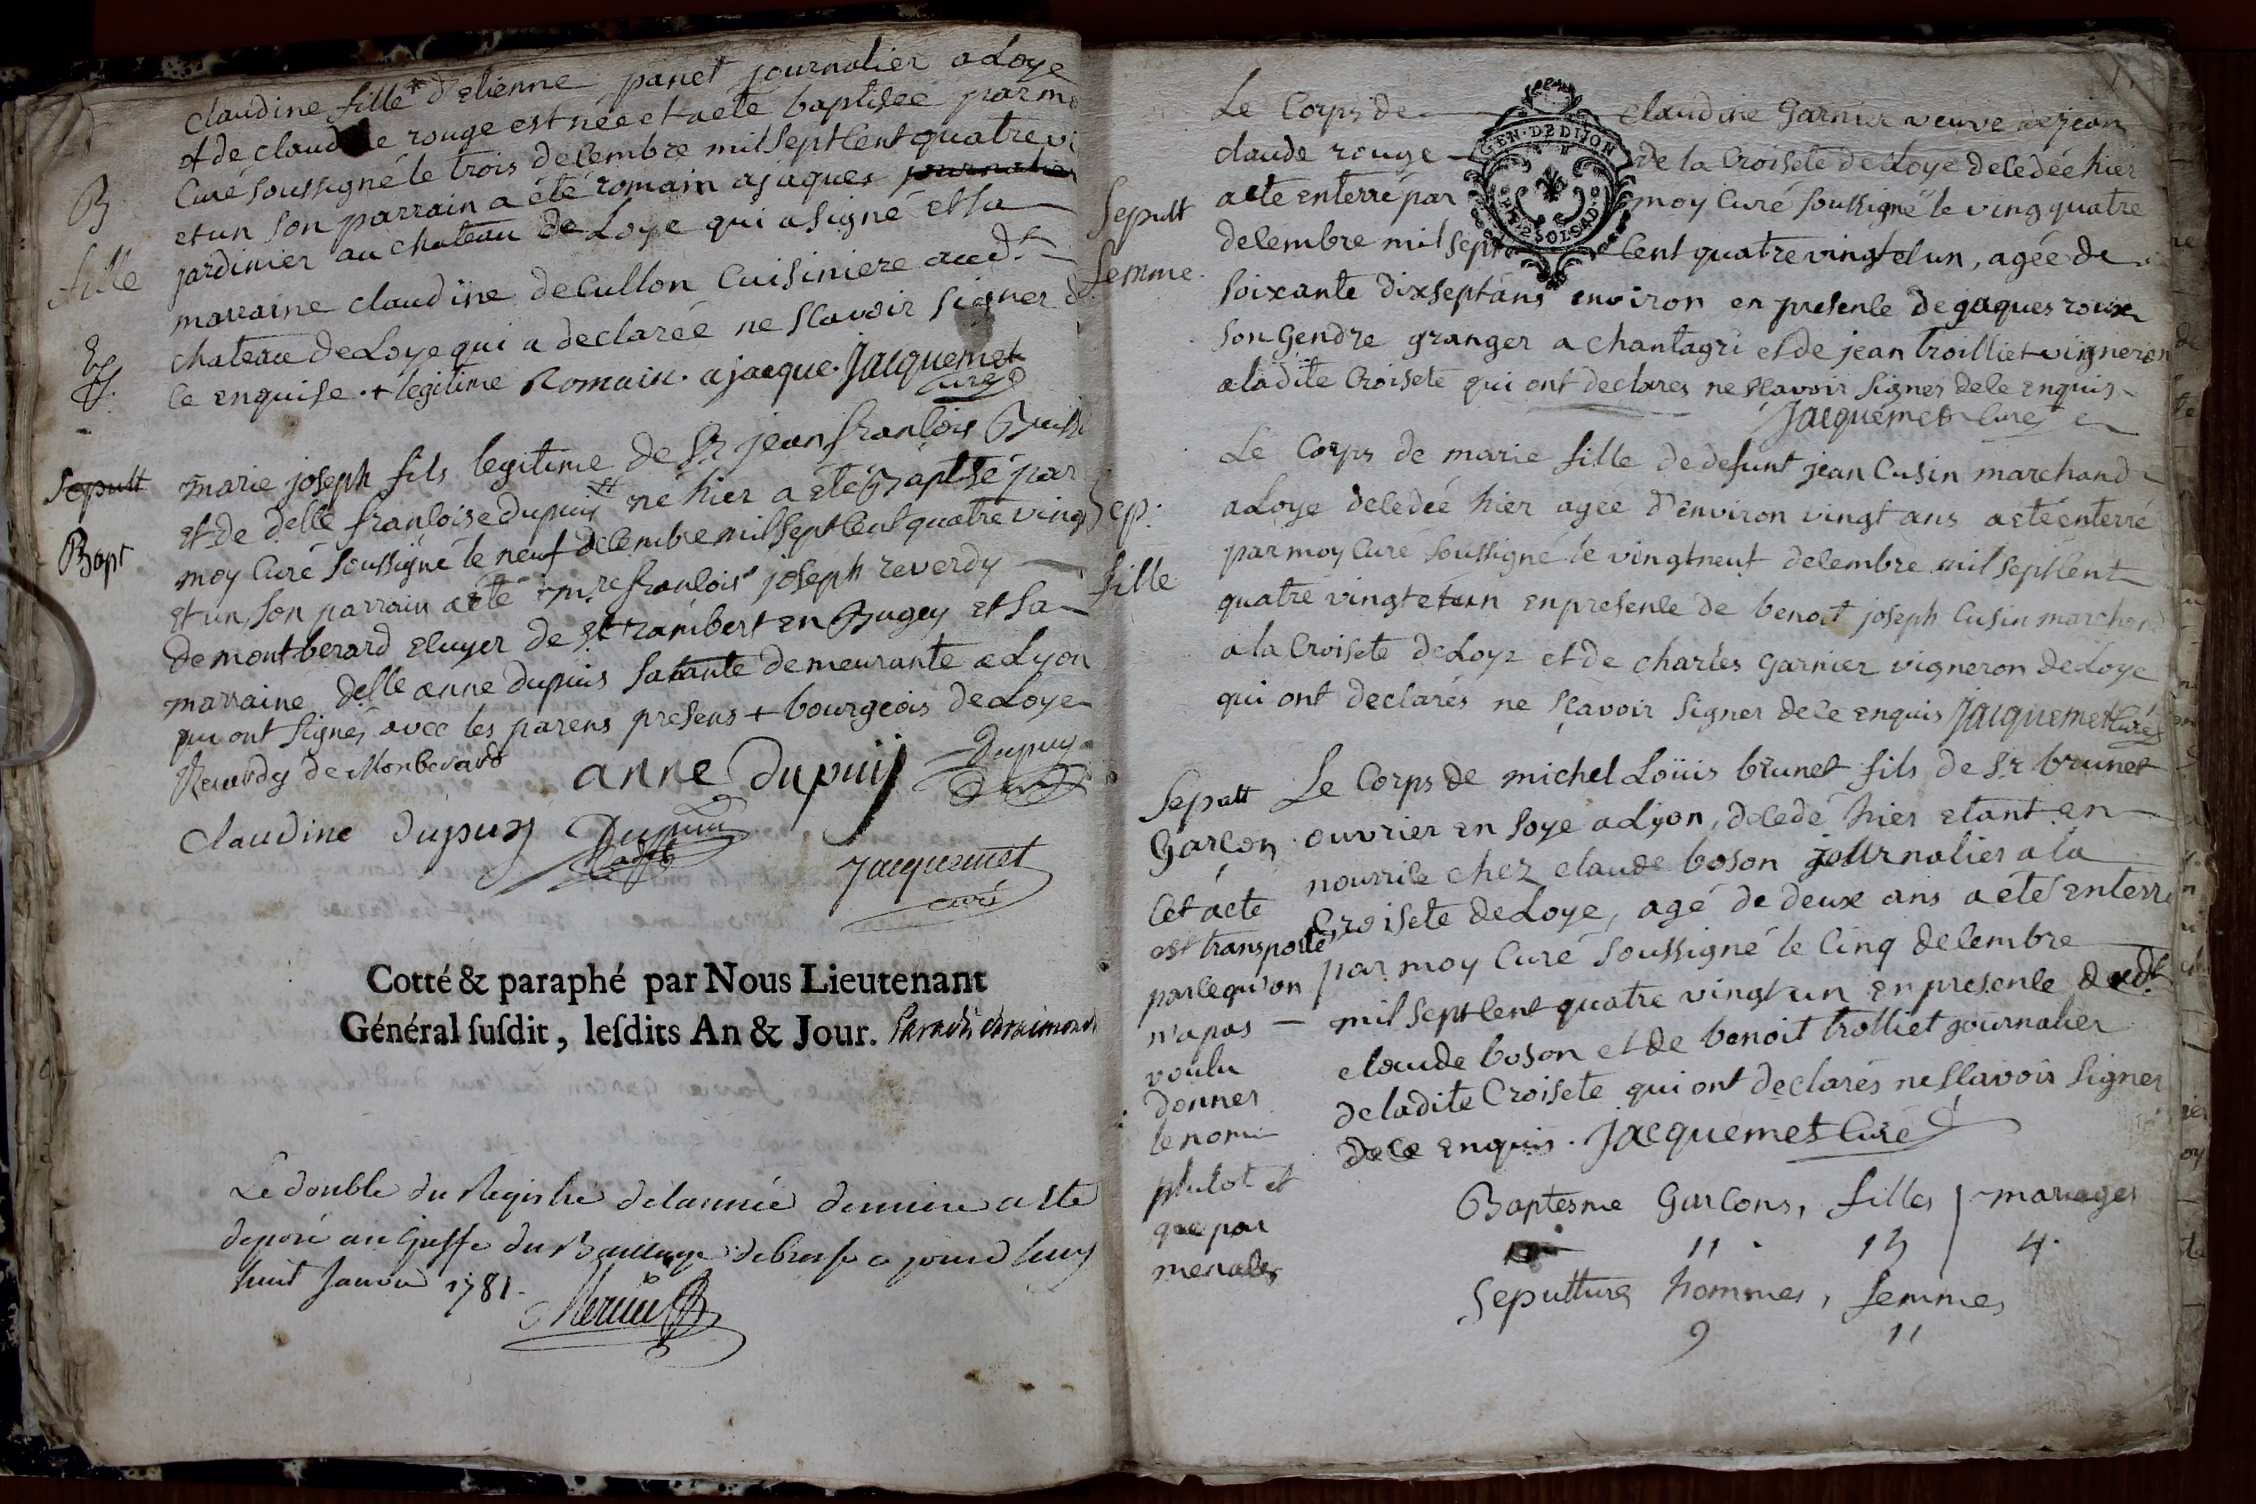 claudine fille + d'etienne panet journalier a Loye
et de claudine rouge est née et a eté baptisée par mo
Curé soussigné le trois decembre mil sept cent quatre vi
B
et un son parrain a été romain ajaques journalier
fille
jardinier au chateau de Loye qui a signé et sa
marraine claudine deCullon Cuisiniere aud.t
chateau de Loye qui a declarée ne scavoir signer d
ce enquise. + legitime Romain. ajacque. Jacquemet
curé
Sepult
marie joseph fils legitime de Sr jean francois Buiss
et de delle francoise dupuis + né hier a eté Baptisé par
Bapt
moy Curé soussigné le neuf decembre mil sept cent quatre ving
et un, son parrain a eté mre francois joseph reverdy
de montberard Ecuyer de St rambert en Bugey et sa
marraine delle anne dupuis sa tante demeurante a Lyon
qui ont signés avec les parens presens + bourgeois de Loye
Reverdy de Monberard anne dupuis Dupuy
claudine dupuy Dupuis
Jacquemet
curé
Cotté & paraphé par Nous Lieutenant
Général susdit, lesdits An & Jour.
Le double du Registre de lannée derniere a été
deposé au Greffe du Bailliage de bresse a jourd huy
huit Janvier 1781.
Le Corps de claudine Garnier veuve de jean
GEN·DE DIJON
claude rouge de la Croisete de Loye decedée hier
Sepult
a eté enterré par moy Curé soussigné le vingquatre
femme
decembre mil sept cent quatrevingt et un, agée de
soixante dixseptans environ en presence de jaques roux
son Gendre granger a chantagri et de jean troilliet vigneron
a ladite Croisete qui ont declares ne scavoir signer de ce enquis
Jacquemet Curé
Le Corps de marie fille de defunt jean Cusin marchand
Sep.
a Loye decedée hier agée d'environ vingt ans a eté enterré
par moy Curé soussigné le vingtneuf decembre mil septcent
fille
quatre vingt et un en presence de benoit joseph Cusin marchand
a la Croisete de Loye et de charles Garnier vigneron de Loye
qui ont declarés ne scavoir signer de ce enquis Jacquemet Curé
Sepult Le Corps de michel Loüis brunet fils de Sr brunet
Garcon ouvrier en soye a Lyon, decedé hier etant en
nourrice chez claude boson journalier a la
Cet acte Croisete de Loye, agé de deux ans a eté enterré
est transporté par moy Curé soussigné le Cinq decembre
parcequ'on mil sept cent quatre vingt un en presence dudt
n'a pas claude boson et de benoit trolliet journalier
voulu
donner de ladite Croisete qui ont declarés ne scavoir signer
le nom de ce enquis. Jacquemet Curé
plutot et
que par
Baptesme Garcons, filles mariages
11. 13 4.
Sepultures hommes, femmes
9 11